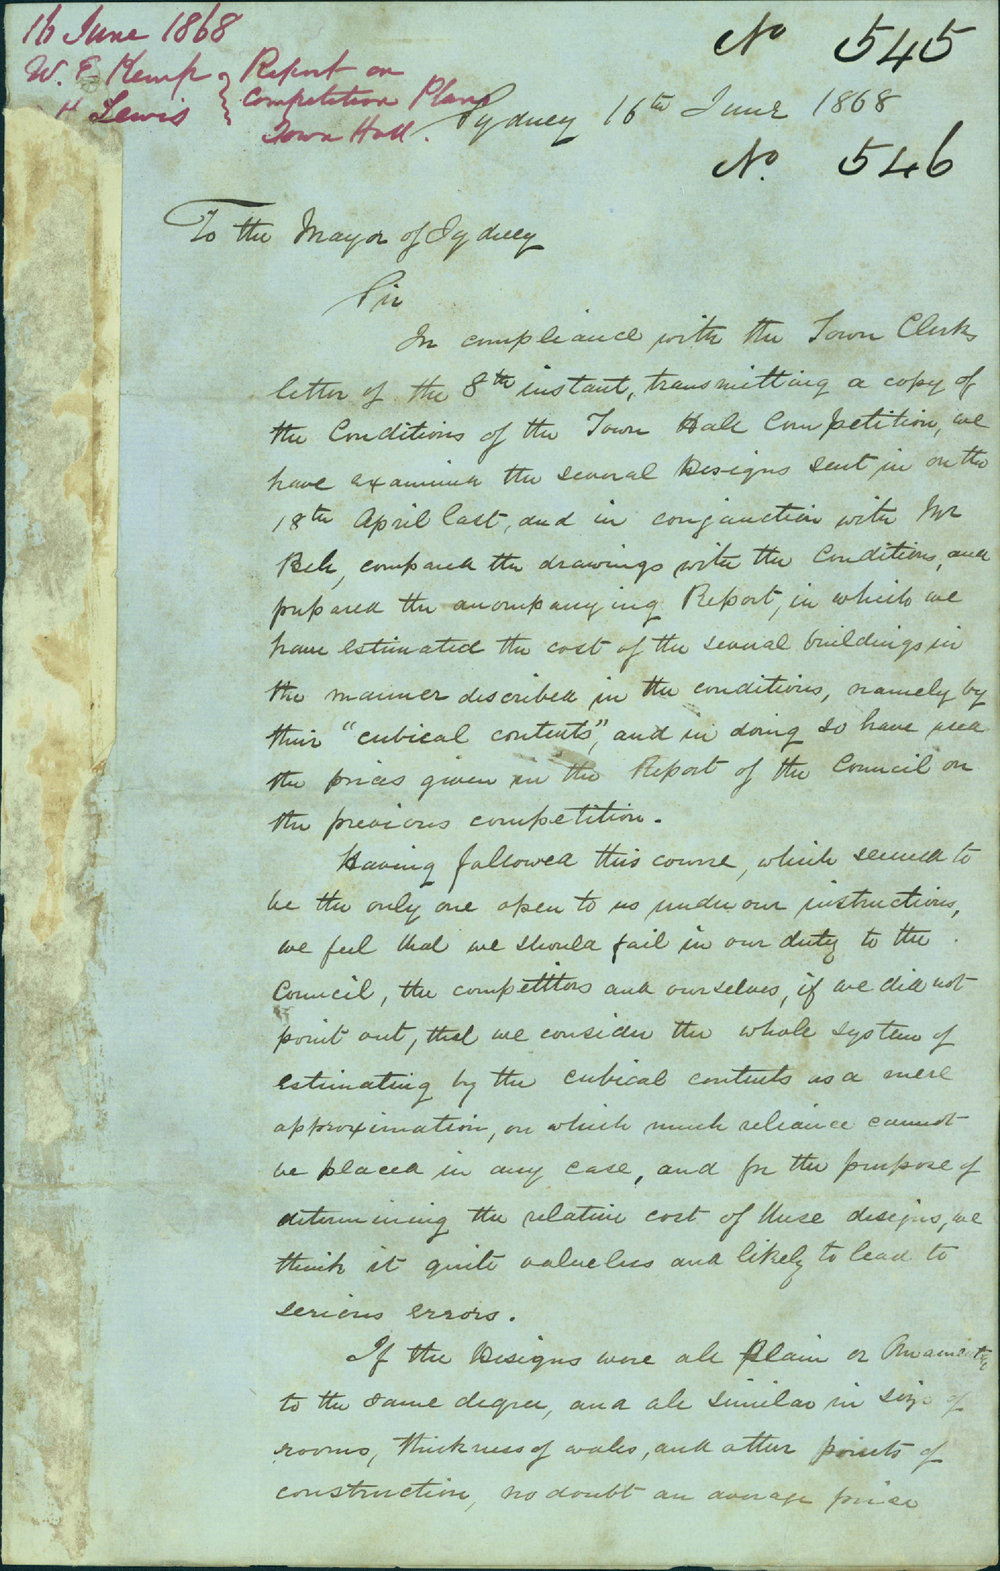 16 June 1868
W. E Kemp } Report on
H Lewis } Competition Plans
Town Hall.
No 545
Sydney 16th June 1868
No. 546
To the Mayor of Sydney
Sir
In compliance with the Town Clerks
letter of the 8th instant, transmitting a copy of
the Conditions of the Town Hall Competition, we
have examined the several Designs sent in on the
18th April last, and in conjunction with Mr
Bell, compared the drawings with the Conditions, and
prepared the accompanying Report, in which we
have estimated the cost of the several buildings in
the manner described in the conditions, namely by
their "cubical contents", and in doing so have used
the prices given in the Report of the Council on
the previous competition.
Having followed this course, which seemed to
be the only one open to us under our instructions,
we feel that we should fail in our duty to the
Council, the competitors and ourselves, if we did not
point out, that we consider the whole system of
estimating by the cubical contents as a mere
approximation, on which much reliance cannot
be placed in any case, and for the purpose of
determining the relative cost of these designs, we
think it quite valueless and likely to lead to
serious errors.
If the Designs were all Plain or Ornamented
to the same degree, and all similar in size of
rooms, thickness of walls, and other points of
construction, no doubt an average price